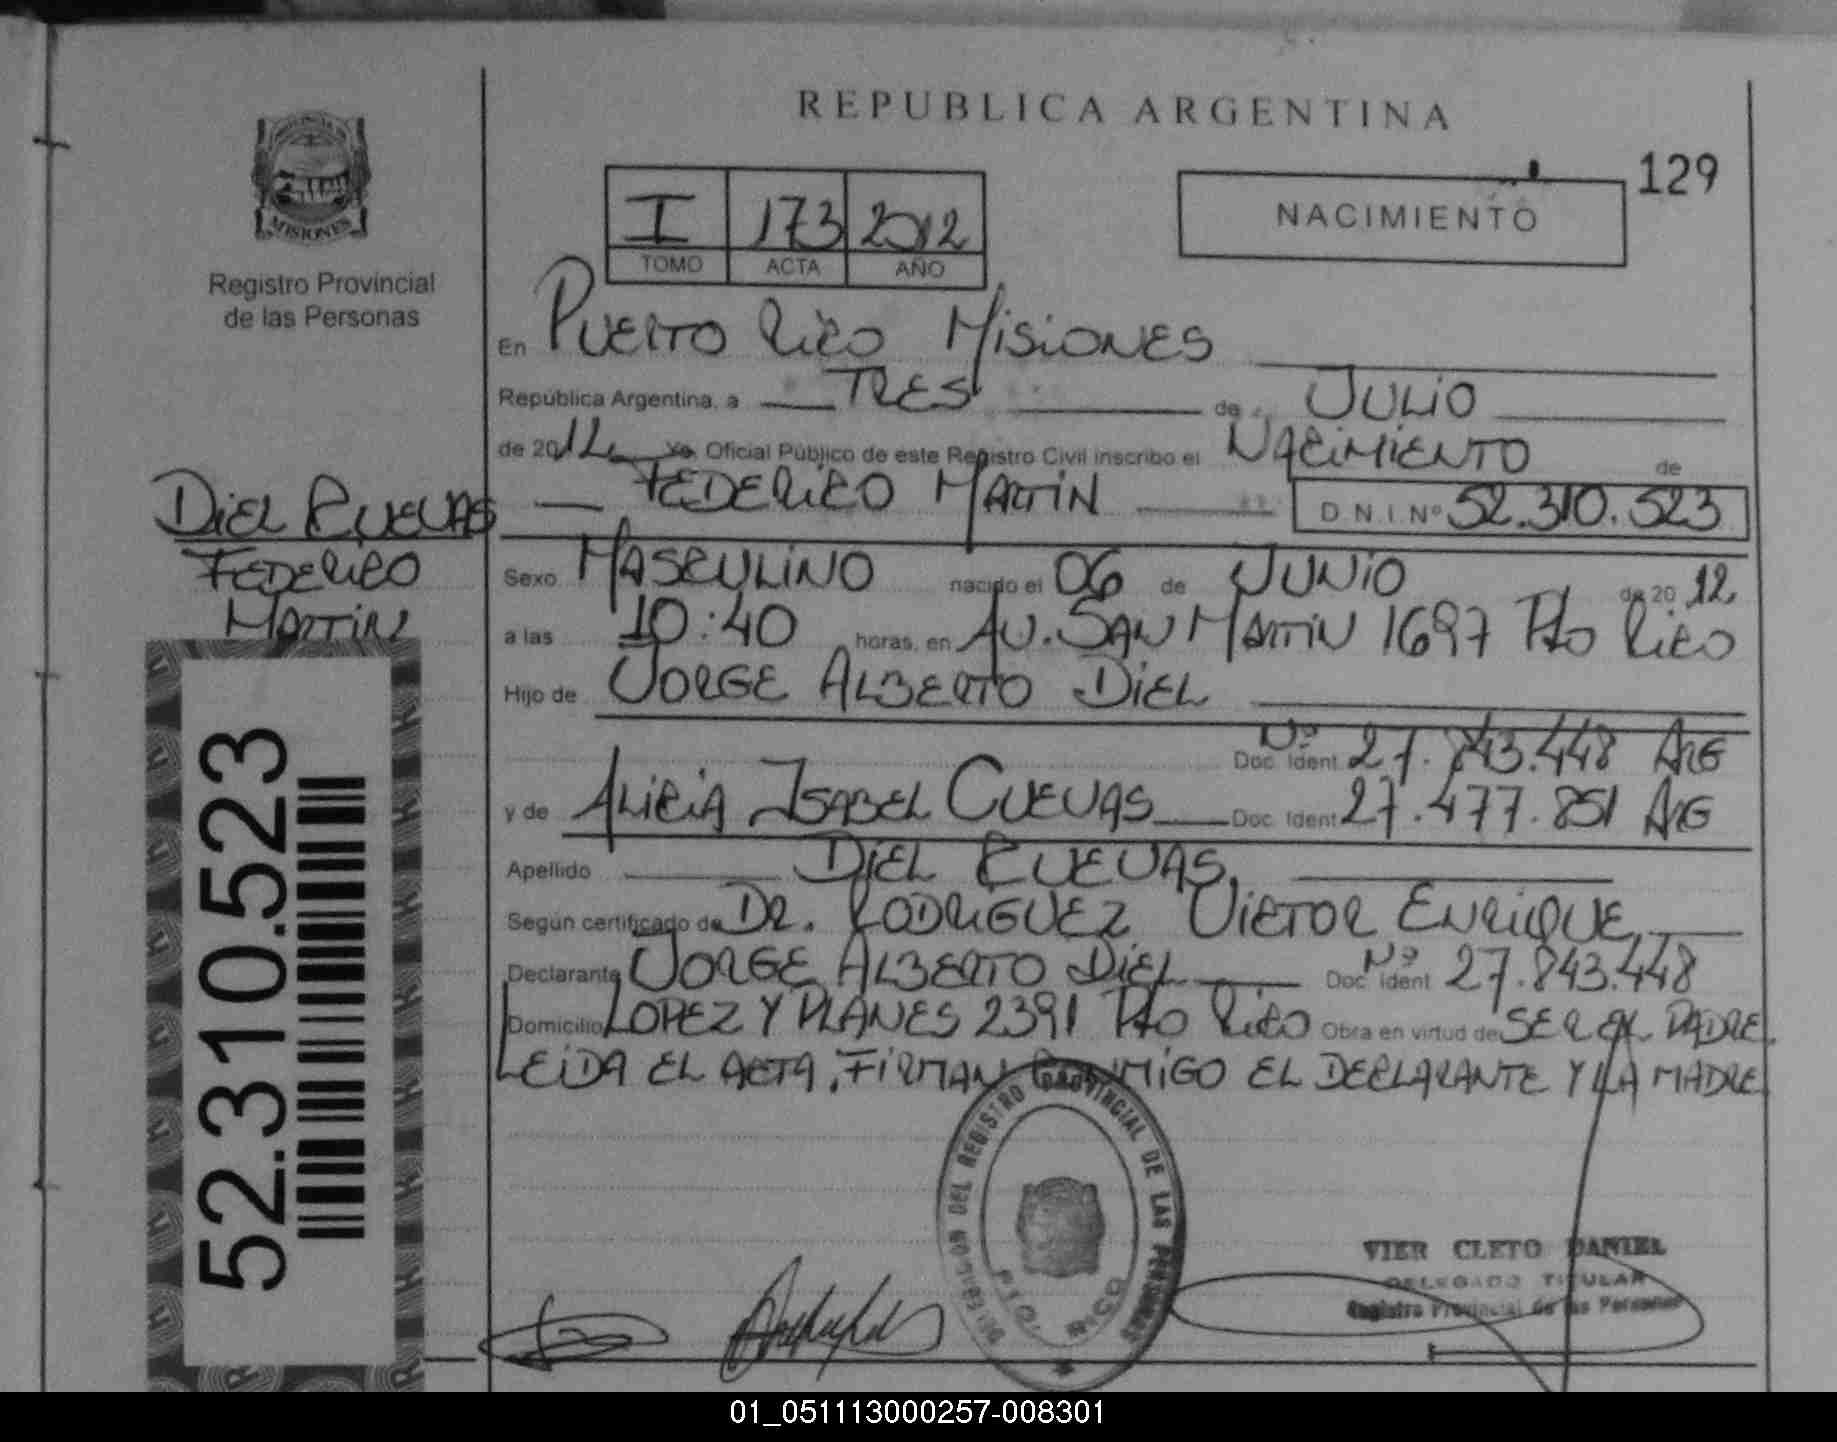 REPUBLICA ARGENTINA
129
MISIONES
Registro Provincial
de las Personas
I 173 2012
TOMO ACTA AÑO
NACIMIENTO
En PUERTO RICO MISIONES
República Argentina, a TRES de JULIO
de 2012 Yo, Oficial Público de este Registro Civil inscribo el NACIMIENTO de
FEDERICO MARTIN D.N.I. Nº 52.310.523
DIEL CUEVAS
FEDERICO
MARTIN
Sexo MASCULINO nacido el 06 de JUNIO de 2012
a las 10:40 horas, en AV. SAN MARTIN 1697 Pto RICO
Hijo de JORGE ALBERTO DIEL
Doc. Ident. Nº 27.843.448 ARG
y de ALICIA ISABEL CUEVAS Doc. Ident. 27.477.851 ARG
Apellido DIEL CUEVAS
Según certificado de DR. RODRIGUEZ VICTOR ENRIQUE
Declarante JORGE ALBERTO DIEL Doc. Ident. Nº 27.843.448
Domicilio LOPEZ Y PLANES 2391 Pto RICO Obra en virtud de SER EL PADRE
LEIDA EL ACTA, FIRMAN CONMIGO EL DECLARANTE Y LA MADRE
52.310.523
DELEGACION DEL REGISTRO PROVINCIAL DE LAS PERSONAS
PTO. RICO
VIER CLETO DANIEL
DELEGADO TITULAR
Registro Provincial de las Personas
01_051113000257-008301